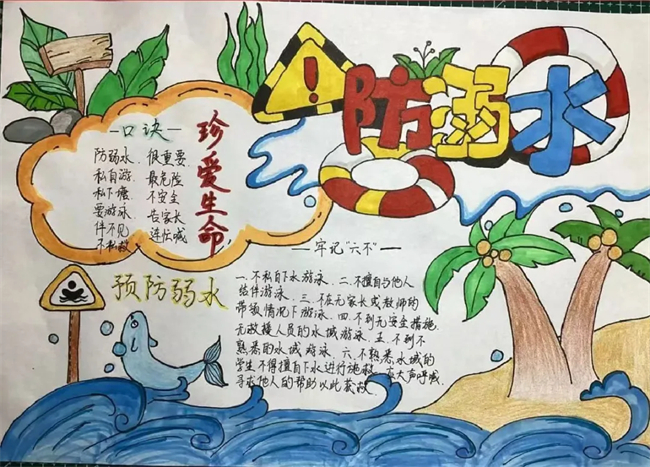 防溺水
珍爱生命
一口诀一
防弱水 很重要
私自游 最危险
私下塘 不安全
要游泳 告家长
伴不见 连忙喊
不私救
预防弱水
一牢记“六不”一
一.不私自下水游泳.二.不擅自与他人
结伴游泳.三.不在无家长或教师的
带领情况下游泳.四.不到无安全措施.
无救援人员的水域游泳.五.不到不
熟悉的水域游泳.六.不熟悉水域的
学生不得擅自下水进行施救.大声呼喊.
寻求他人的帮助以此获救.